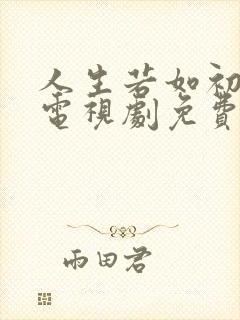 人生若如初
電視劇免費
雨田君